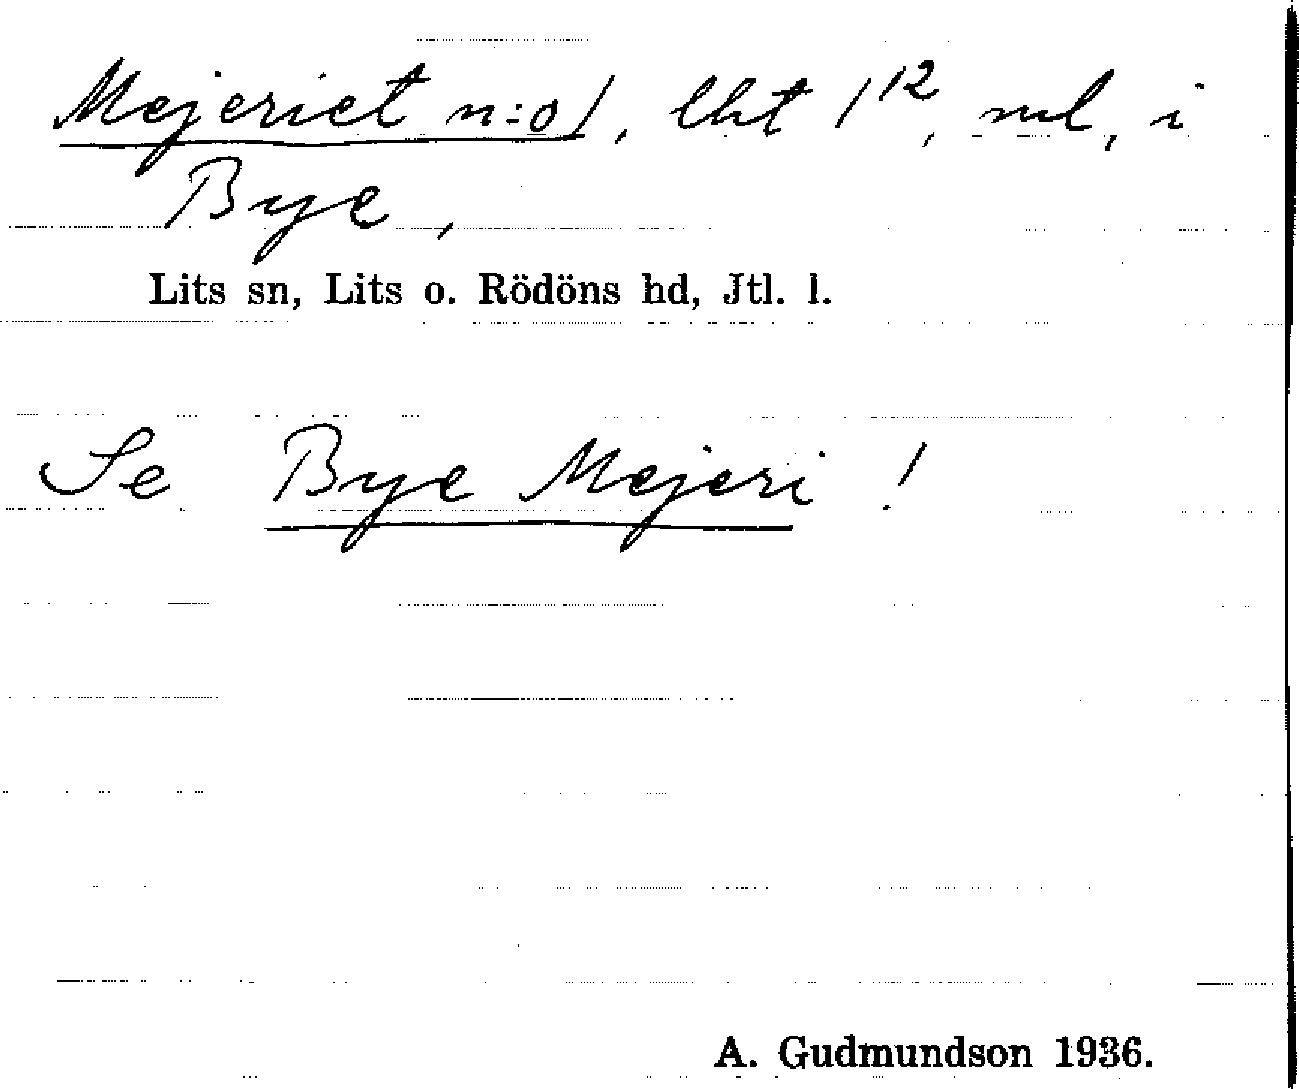 Mejeriet n:o 1, lht 1¹², nml, i
Bye,
Lits sn, Lits o. Rödöns hd, Jtl. l.
Se Bye Mejeri !
A. Gudmundson 1936.